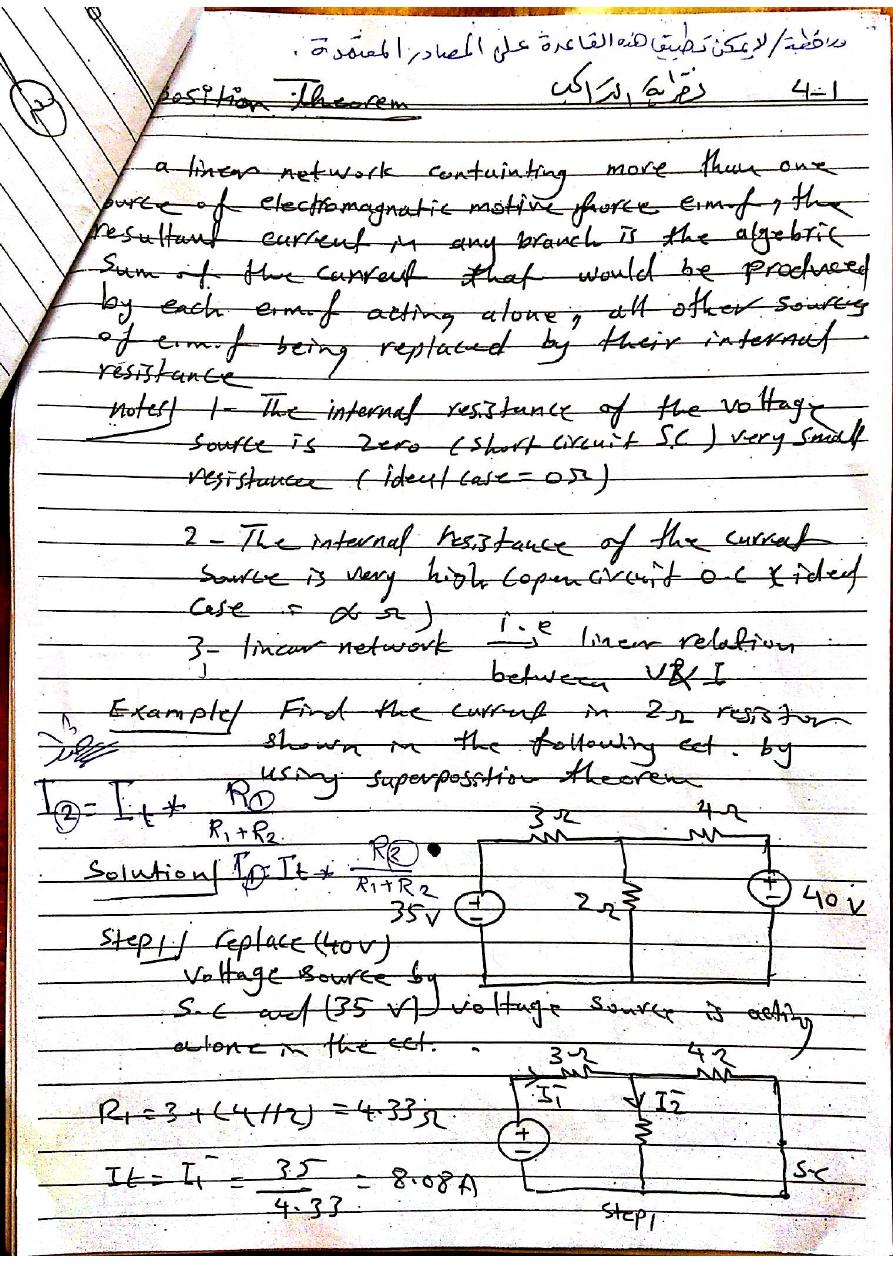 ملاحظة/ لا يمكن تطبيق هذه القاعدة على المصادر المعتمدة .
2
position Theorem نظرية التراكب 4-1
a linear network contuinting more than one
ource of electromagnatic motive force e.m.f, the
resultant current in any branch is the algebric
sum of the current that would be produced
by each e.m.f acting alone, all other sources
of e.m.f being replaced by their internal
resistance
notes/ 1- The internal resistance of the voltage
source is zero (short circuit S.C) very small
resistance (ideal case = 0Ω)
2- The internal resistance of the current
source is very high (open circuit o.c) (ideal
case = ∝ Ω)
3- linear network i.e → linear relation
between V & I
Example/ Find the current in 2Ω resistor
shown in the following cct. by
using superposstion theorem
I2 = It * R1 / R1+R2
3Ω 4Ω
Solution/ I1 = It * R2 / R1+R2
35v 2Ω 40v
Step1/ replace (40v)
voltage source by
S.C and (35 V) voltage source is acting
alone in the cct.
3Ω 4Ω
Rt = 3 + (4//2) = 4.33Ω I1̄ I2̄
It = I1̄ = 35 / 4.33 = 8.08A S.C
Step1